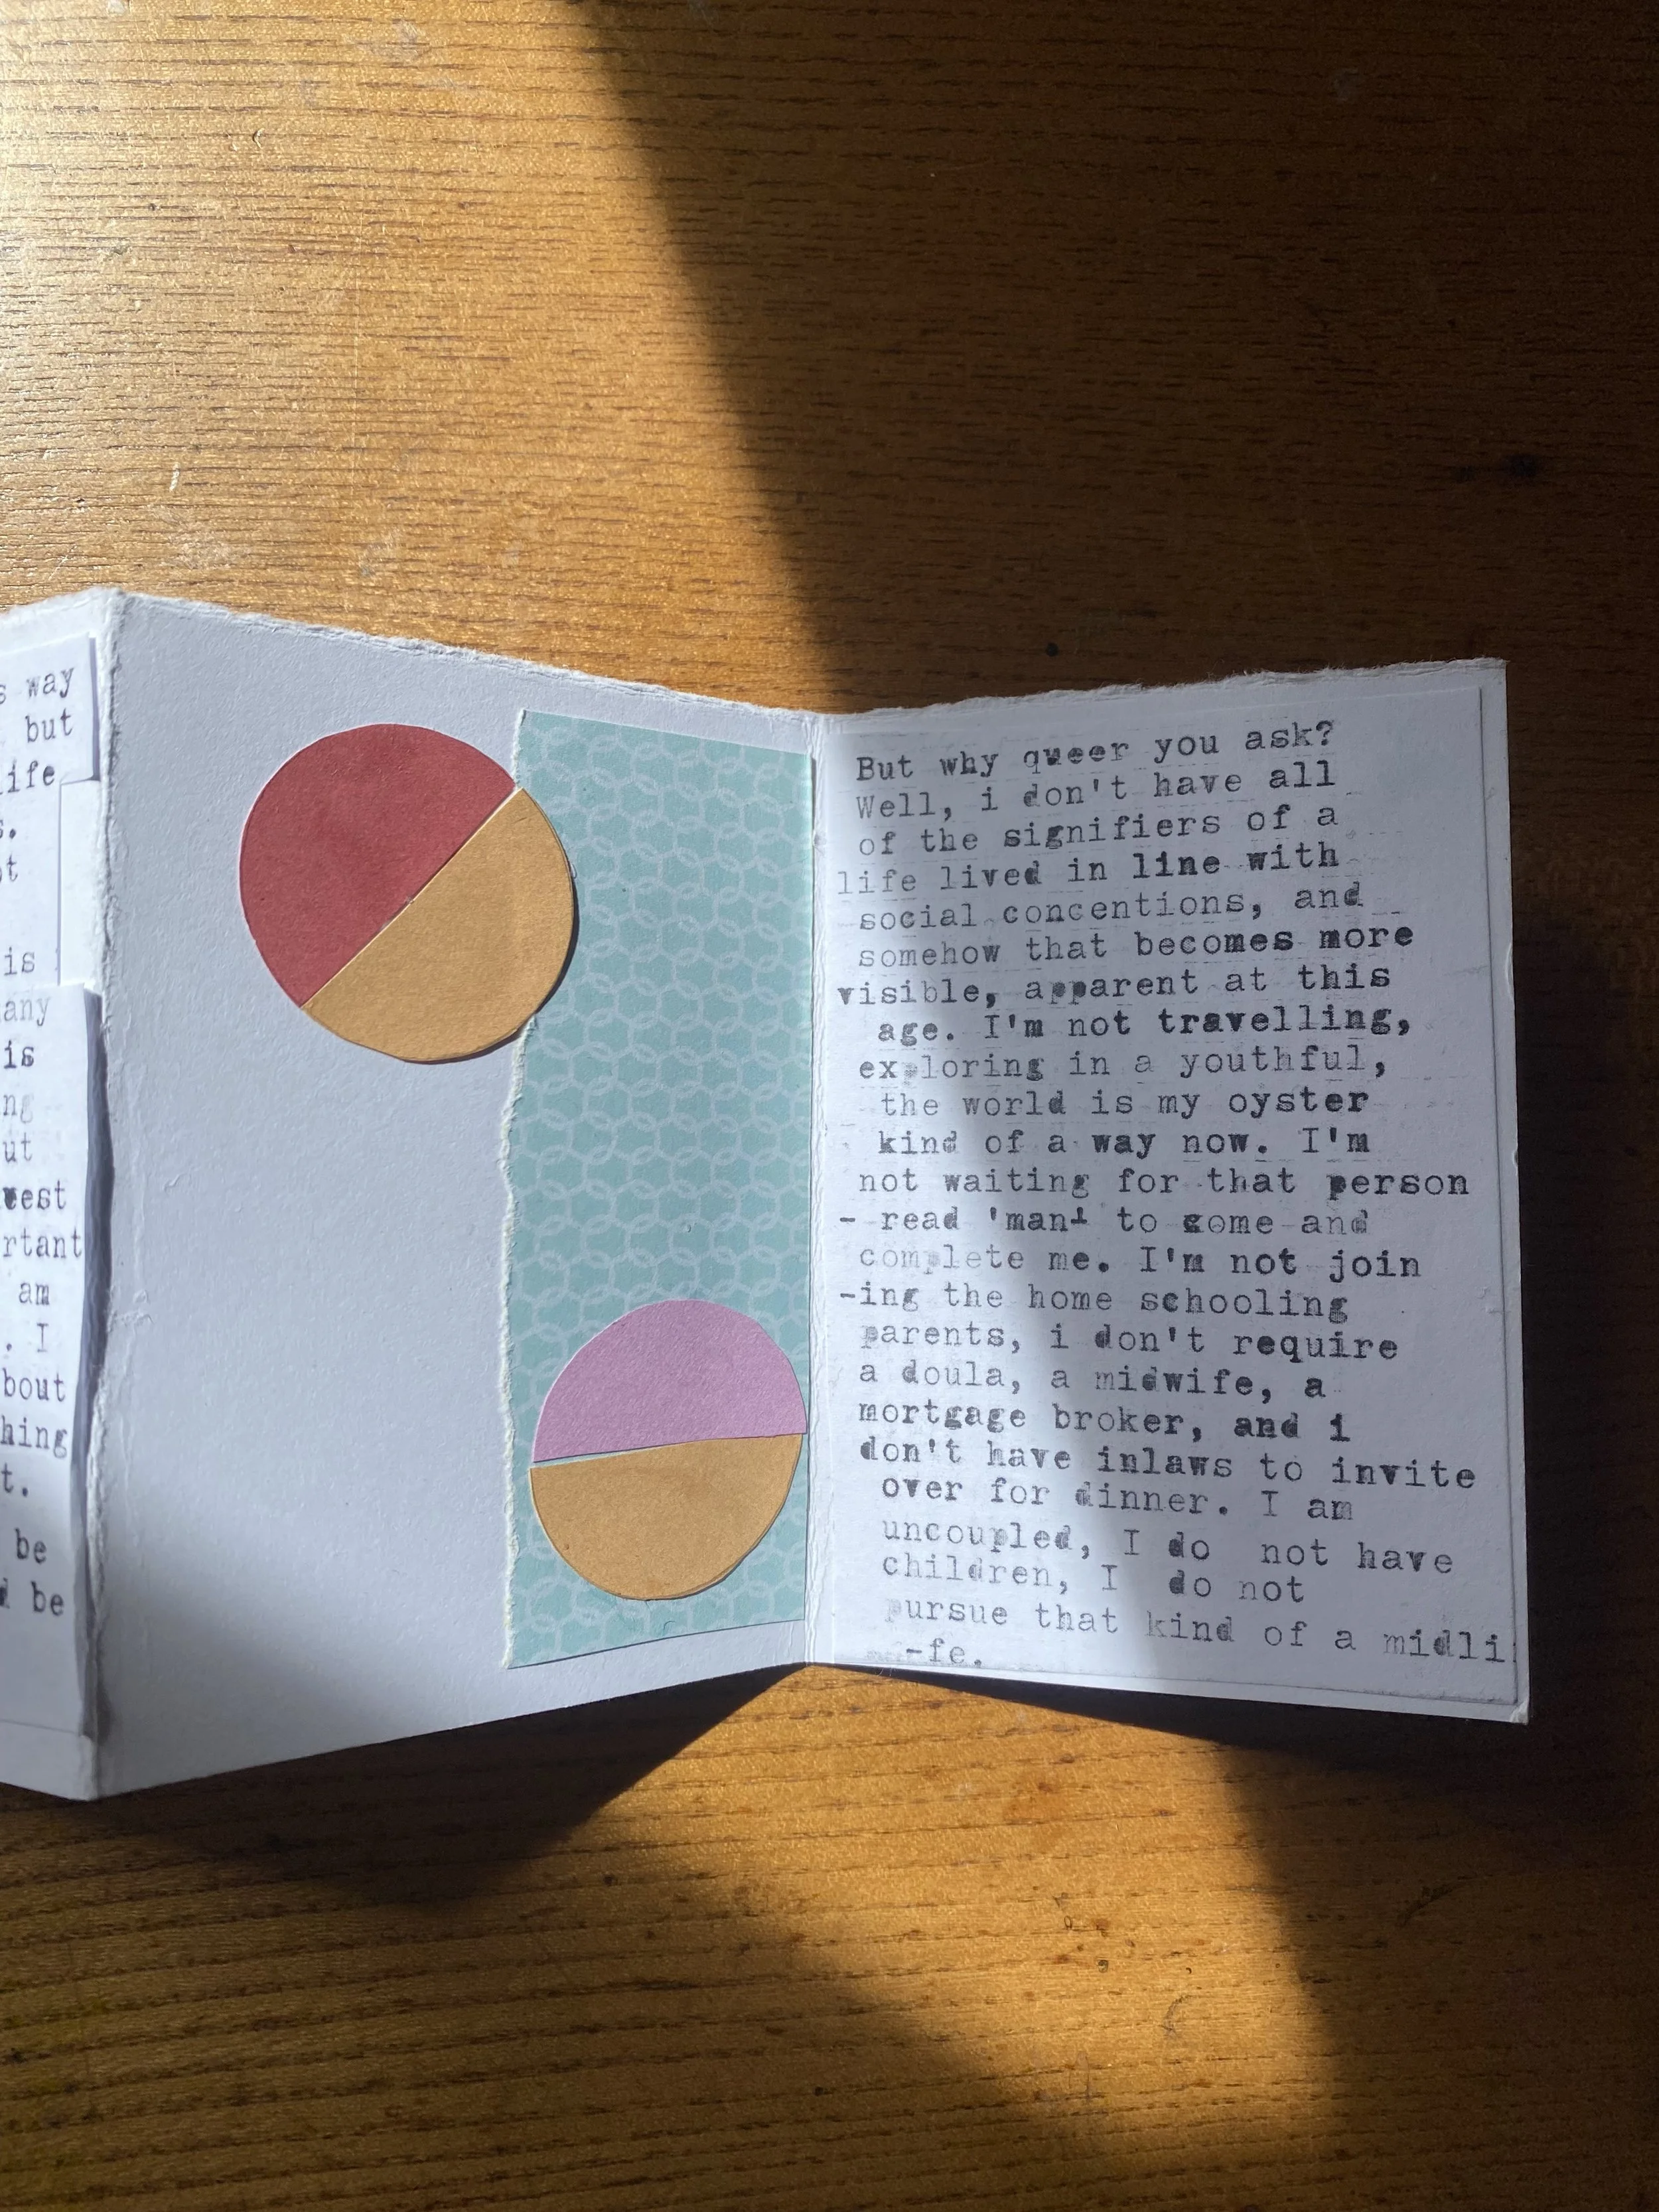 s way
but
life
s.
ot
is
any
is
ng
ut
vest
rtant
am
. I
bout
hing
t.
be
d be
But why queer you ask?
Well, i don't have all
of the signifiers of a
life lived in line with
social concentions, and
somehow that becomes more
visible, apparent at this
age. I'm not travelling,
exploring in a youthful,
the world is my oyster
kind of a way now. I'm
not waiting for that person
- read 'man' to come and
complete me. I'm not join
-ing the home schooling
parents, i don't require
a doula, a midwife, a
mortgage broker, and i
don't have inlaws to invite
over for dinner. I am
uncoupled, I do not have
children, I do not
pursue that kind of a midli
-fe.